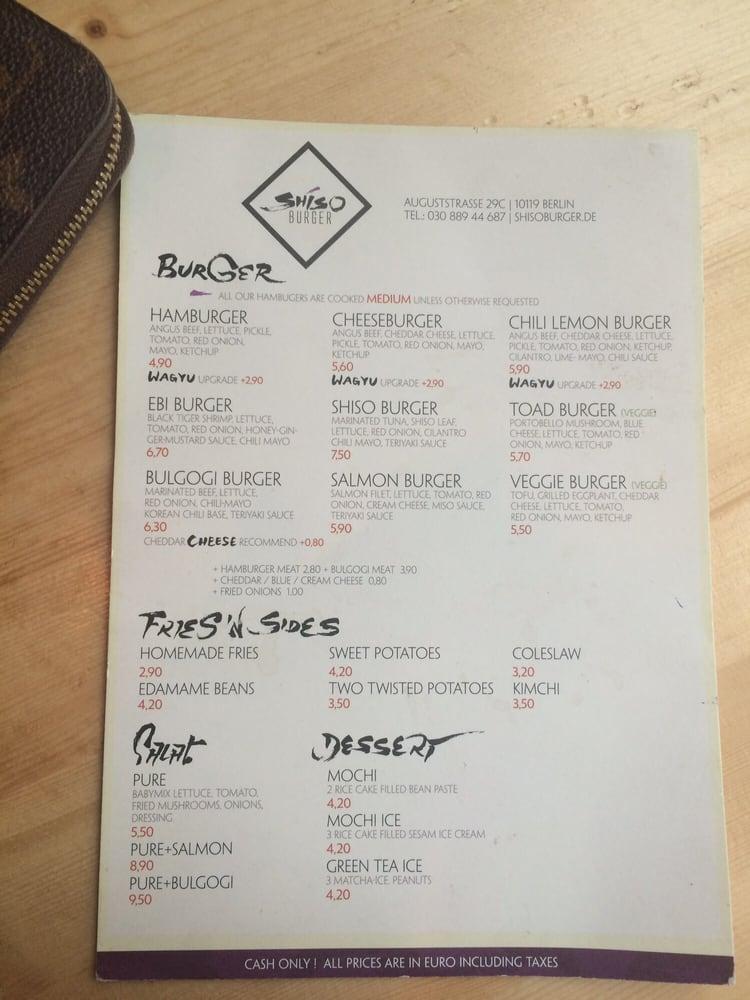 SHISO
BURGER
AUGUSTSTRASSE 29C | 10119 BERLIN
TEL.: 030 889 44 687 | SHISOBURGER.DE
BURGER
ALL OUR HAMBUGERS ARE COOKED MEDIUM UNLESS OTHERWISE REQUESTED
HAMBURGER
ANGUS BEEF, LETTUCE, PICKLE,
TOMATO, RED ONION,
MAYO, KETCHUP
4,90
WAGYU UPGRADE +2,90
CHEESEBURGER
ANGUS BEEF, CHEDDAR CHEESE, LETTUCE,
PICKLE, TOMATO, RED ONION, MAYO,
KETCHUP
5,60
WAGYU UPGRADE +2,90
CHILI LEMON BURGER
ANGUS BEEF, CHEDDAR CHEESE, LETTUCE,
PICKLE, TOMATO, RED ONION, KETCHUP,
CILANTRO, LIME- MAYO, CHILI SAUCE
5,90
WAGYU UPGRADE +2,90
EBI BURGER
BLACK TIGER SHRIMP, LETTUCE,
TOMATO, RED ONION, HONEY-GIN-
GER-MUSTARD SAUCE, CHILI MAYO
6,70
SHISO BURGER
MARINATED TUNA, SHISO LEAF,
LETTUCE, RED ONION, CILANTRO
CHILI MAYO, TERIYAKI SAUCE
7,50
TOAD BURGER (VEGGIE)
PORTOBELLO MUSHROOM, BLUE
CHEESE, LETTUCE, TOMATO, RED
ONION, MAYO, KETCHUP
5,70
BULGOGI BURGER
MARINATED BEEF, LETTUCE,
RED ONION, CHILI-MAYO
KOREAN CHILI BASE, TERIYAKI SAUCE
6,30
CHEDDAR CHEESE RECOMMEND +0,80
SALMON BURGER
SALMON FILET, LETTUCE, TOMATO, RED
ONION, CREAM CHEESE, MISO SAUCE,
TERIYAKI SAUCE
5,90
VEGGIE BURGER (VEGGIE)
TOFU, GRILLED EGGPLANT, CHEDDAR
CHEESE, LETTUCE, TOMATO,
RED ONION, MAYO, KETCHUP
5,50
+ HAMBURGER MEAT 2,80 + BULGOGI MEAT 3,90
+ CHEDDAR / BLUE / CREAM CHEESE 0,80
+ FRIED ONIONS 1,00
FRIES'N SIDES
HOMEMADE FRIES
2,90
SWEET POTATOES
4,20
COLESLAW
3,20
EDAMAME BEANS
4,20
TWO TWISTED POTATOES
3,50
KIMCHI
3,50
SALAT
PURE
BABYMIX LETTUCE, TOMATO,
FRIED MUSHROOMS, ONIONS,
DRESSING
5,50
PURE+SALMON
8,90
PURE+BULGOGI
9,50
DESSERT
MOCHI
2 RICE CAKE FILLED BEAN PASTE
4,20
MOCHI ICE
3 RICE CAKE FILLED SESAM ICE CREAM
4,20
GREEN TEA ICE
3 MATCHA-ICE, PEANUTS
4,20
CASH ONLY ! ALL PRICES ARE IN EURO INCLUDING TAXES